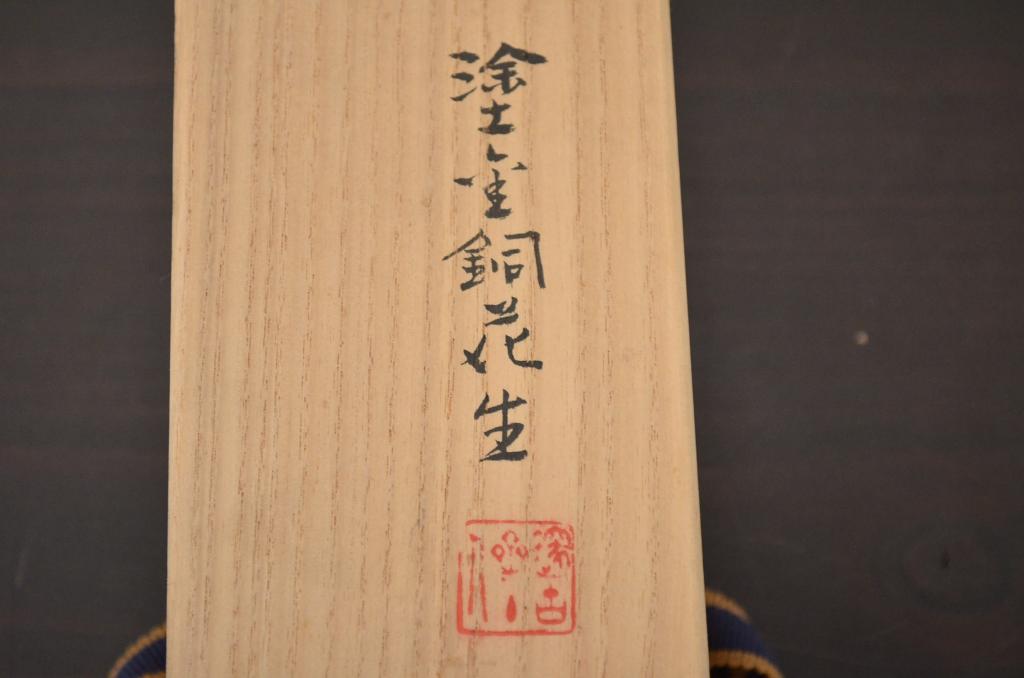 塗金銅花生